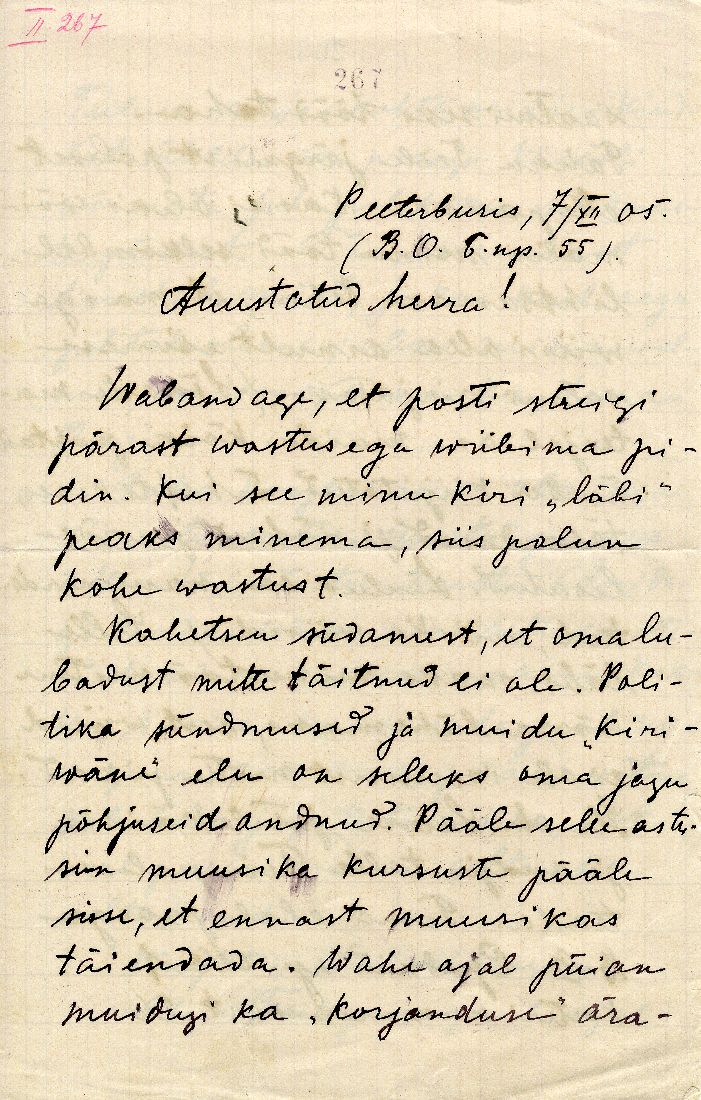 II 267
267
Peeterburis, 7/XII 05.
(В.О. 5.лр. 55).
Auustatud herra!
Wabandage, et posti streigi
pärast wastusega wiibima pi-
din. Kui see minu kiri „läbi"
peaks minema, siis palun
kohe wastust.
Kahetsen südamest, et oma lu-
badust mitte täitnud ei ole. Poli-
tika sündmused ja muidu „kiri-
wäne" elu on selleks oma jagu
põhjuseid andnud. Pääle selle astu-
sin muusika kursuste pääle
sisse, et ennast muusikas
täiendada. Wahe ajal püian
muidugi ka „korjanduse" ära-